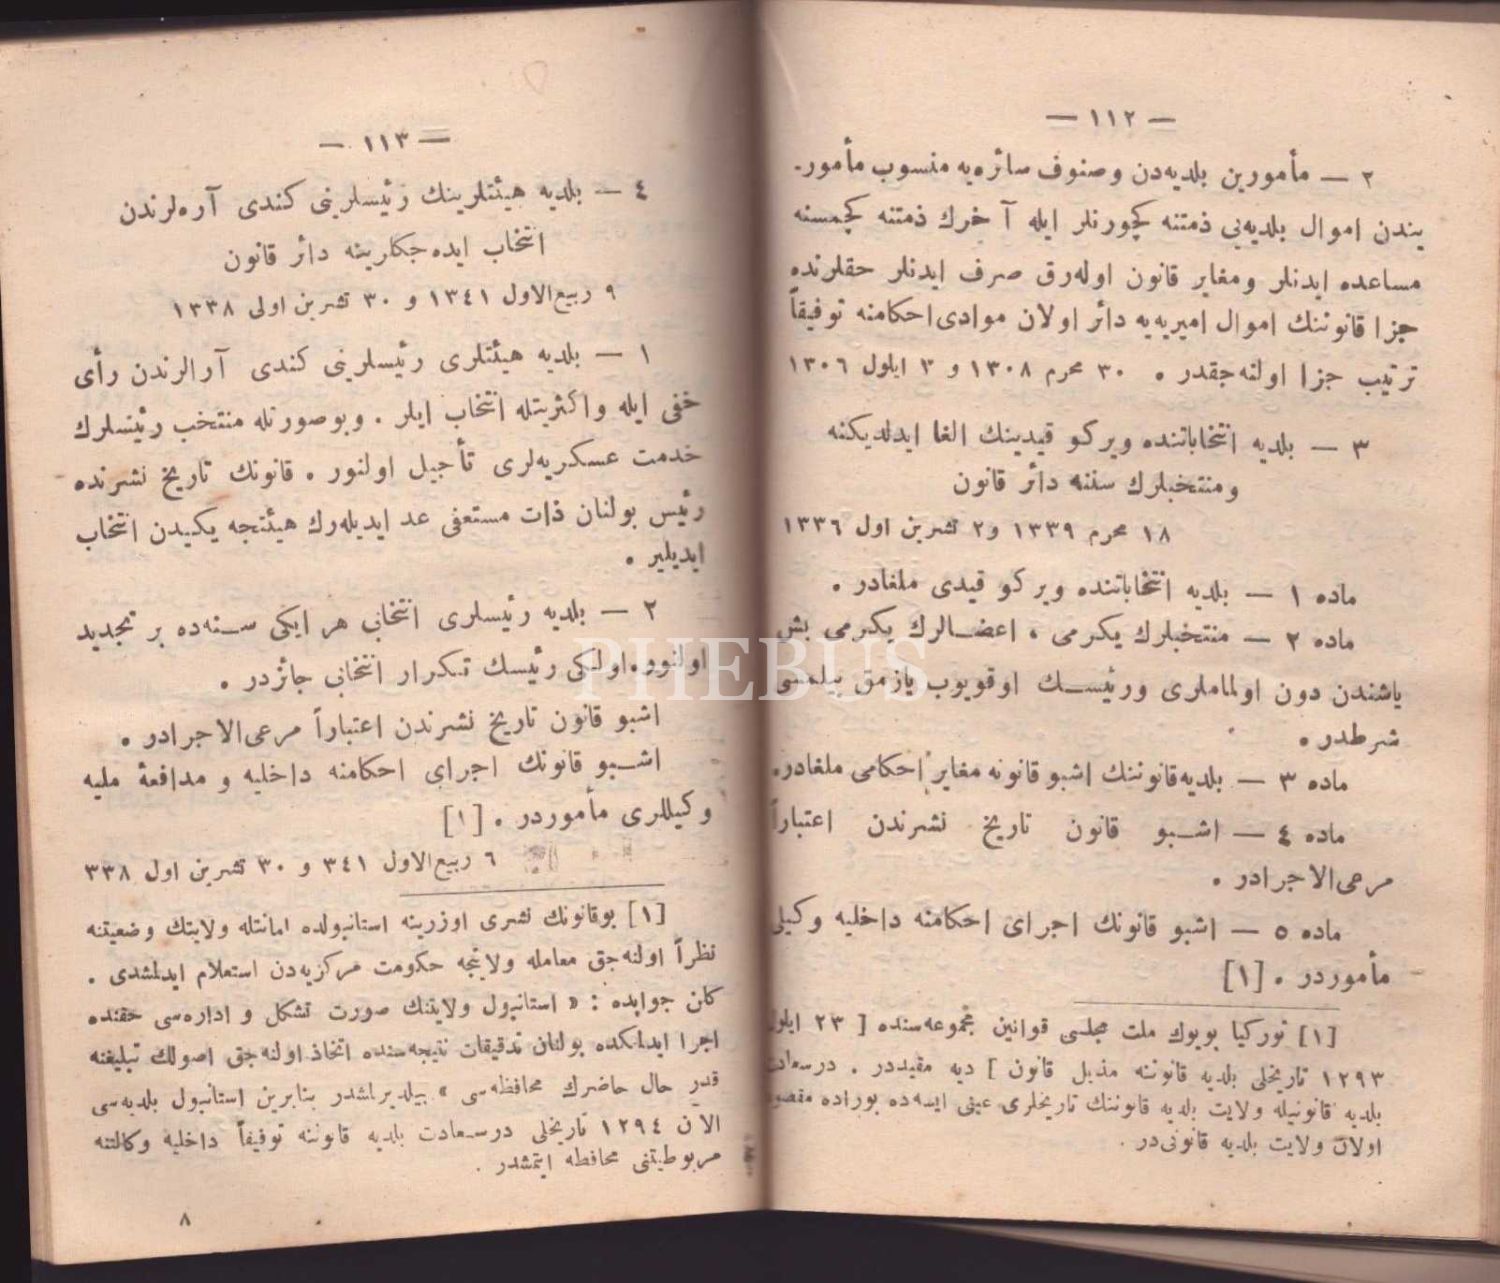 — ١١٢ —
٢ — مأمورین بلدیه‌دن و صنوف سائره‌یه منسوب مأمور-
یندن اموال بلدیه‌یی ذمتنه كچورنلر ایله آخرك ذمتنه كچمسنه
مساعده ایدنلر ومغایر قانون اوله‌رق صرف ایدنلر حقلرنده
جزا قانوننك اموال امیریه‌یه دائر اولان موادی‌احكامنه توفیقاً
ترتیب جزا اولنه‌جقدر . ٣٠ محرم ١٣٠٨ و ٣ ایلول ١٣٠٦
٣ — بلدیه انتخاباتنده ویركو قیدینك الغا ایدلدیكنه
ومنتخبلرك سننه دائر قانون
١٨ محرم ١٣٣٩ و٢ تشرین اول ١٣٣٦
ماده ١ — بلدیه انتخاباتنده ویركو قیدی ملغادر .
ماده ٢ — منتخبلرك یكرمی ، اعضالرك یكرمی بش
یاشندن دون اولماملری ورئیسك اوقویوب یازمق بیلمسی
شرطدر .
ماده ٣ — بلدیه‌قانوننك اشبو قانونه مغایر احكامی ملغادر.
ماده ٤ — اشبو قانون تاریخ نشرندن اعتباراً
مرعی‌الاجرادر .
ماده ٥ — اشبو قانونك اجرای احكامنه داخلیه وكیلی
مأموردر . [١]
[١] توركیا بویوك ملت مجلسی قوانین مجموعه‌سنده [ ٢٣ ایلول
١٢٩٣ تاریخلی بلدیه قانوننه مذیل قانون ] دیه مقیددر . درسعادت
بلدیه قانونیله ولایت بلدیه قانوننك تاریخلری عینی ایسه‌ده بوراده مقصود
اولان ولایت بلدیه قانونی‌در .
— ١١٣ —
٤ — بلدیه هیئتلرینك رئیسلرینی كندی آره‌لرندن
انتخاب ایده‌جكلرینه دائر قانون
٩ ربیع‌الاول ١٣٤١ و ٣٠ تشرین اولی ١٣٣٨
١ — بلدیه هیئتلری رئیسلرینی كندی آرالرندن رأی
خفی ایله واكثریتله انتخاب ایلر . وبوصورتله منتخب رئیسلرك
خدمت عسكریه‌لری تأجیل اولنور . قانونك تاریخ نشرنده
رئیس بولنان ذات مستعفی عد ایدیله‌رك هیئتجه یكیدن انتخاب
ایدیلیر .
٢ — بلدیه رئیسلری انتخابی هر ایكی سنه‌ده بر تجدید
اولنور.اولكی رئیسك تكرار انتخابی جائزدر .
اشبو قانون تاریخ نشرندن اعتباراً مرعی‌الاجرادر .
اشبو قانونك اجرای احكامنه داخلیه و مدافعهٔ ملیه
وكیللری مأموردر . [١]
٦ ربیع‌الاول ٣٤١ و ٣٠ تشرین اول ٣٣٨
[١] بوقانونك نشری اوزرینه استانبولده امانتله ولایتك وضعیتنه
نظراً اولنه‌جق معامله ولایتجه حكومت مركزیه‌دن استعلام ایدلمشدی .
كان جوابده : « استانبول ولایتنك صورت تشكل و اداره‌سی حقنده
اجرا ایدلمكده بولنان تدقیقات نتیجه‌سنده اتخاذ اولنه‌جق اصولك تبلیغنه
قدر حال حاضرك محافظه‌سی » بیلدیرلمشدر بنابرین استانبول بلدیه‌سی
الآن ١٢٩٤ تاریخلی درسعادت بلدیه قانوننه توفیقاً داخلیه وكالتنه
مربوطیتنی محافظه ایتمشدر .
٨
PHEBUS